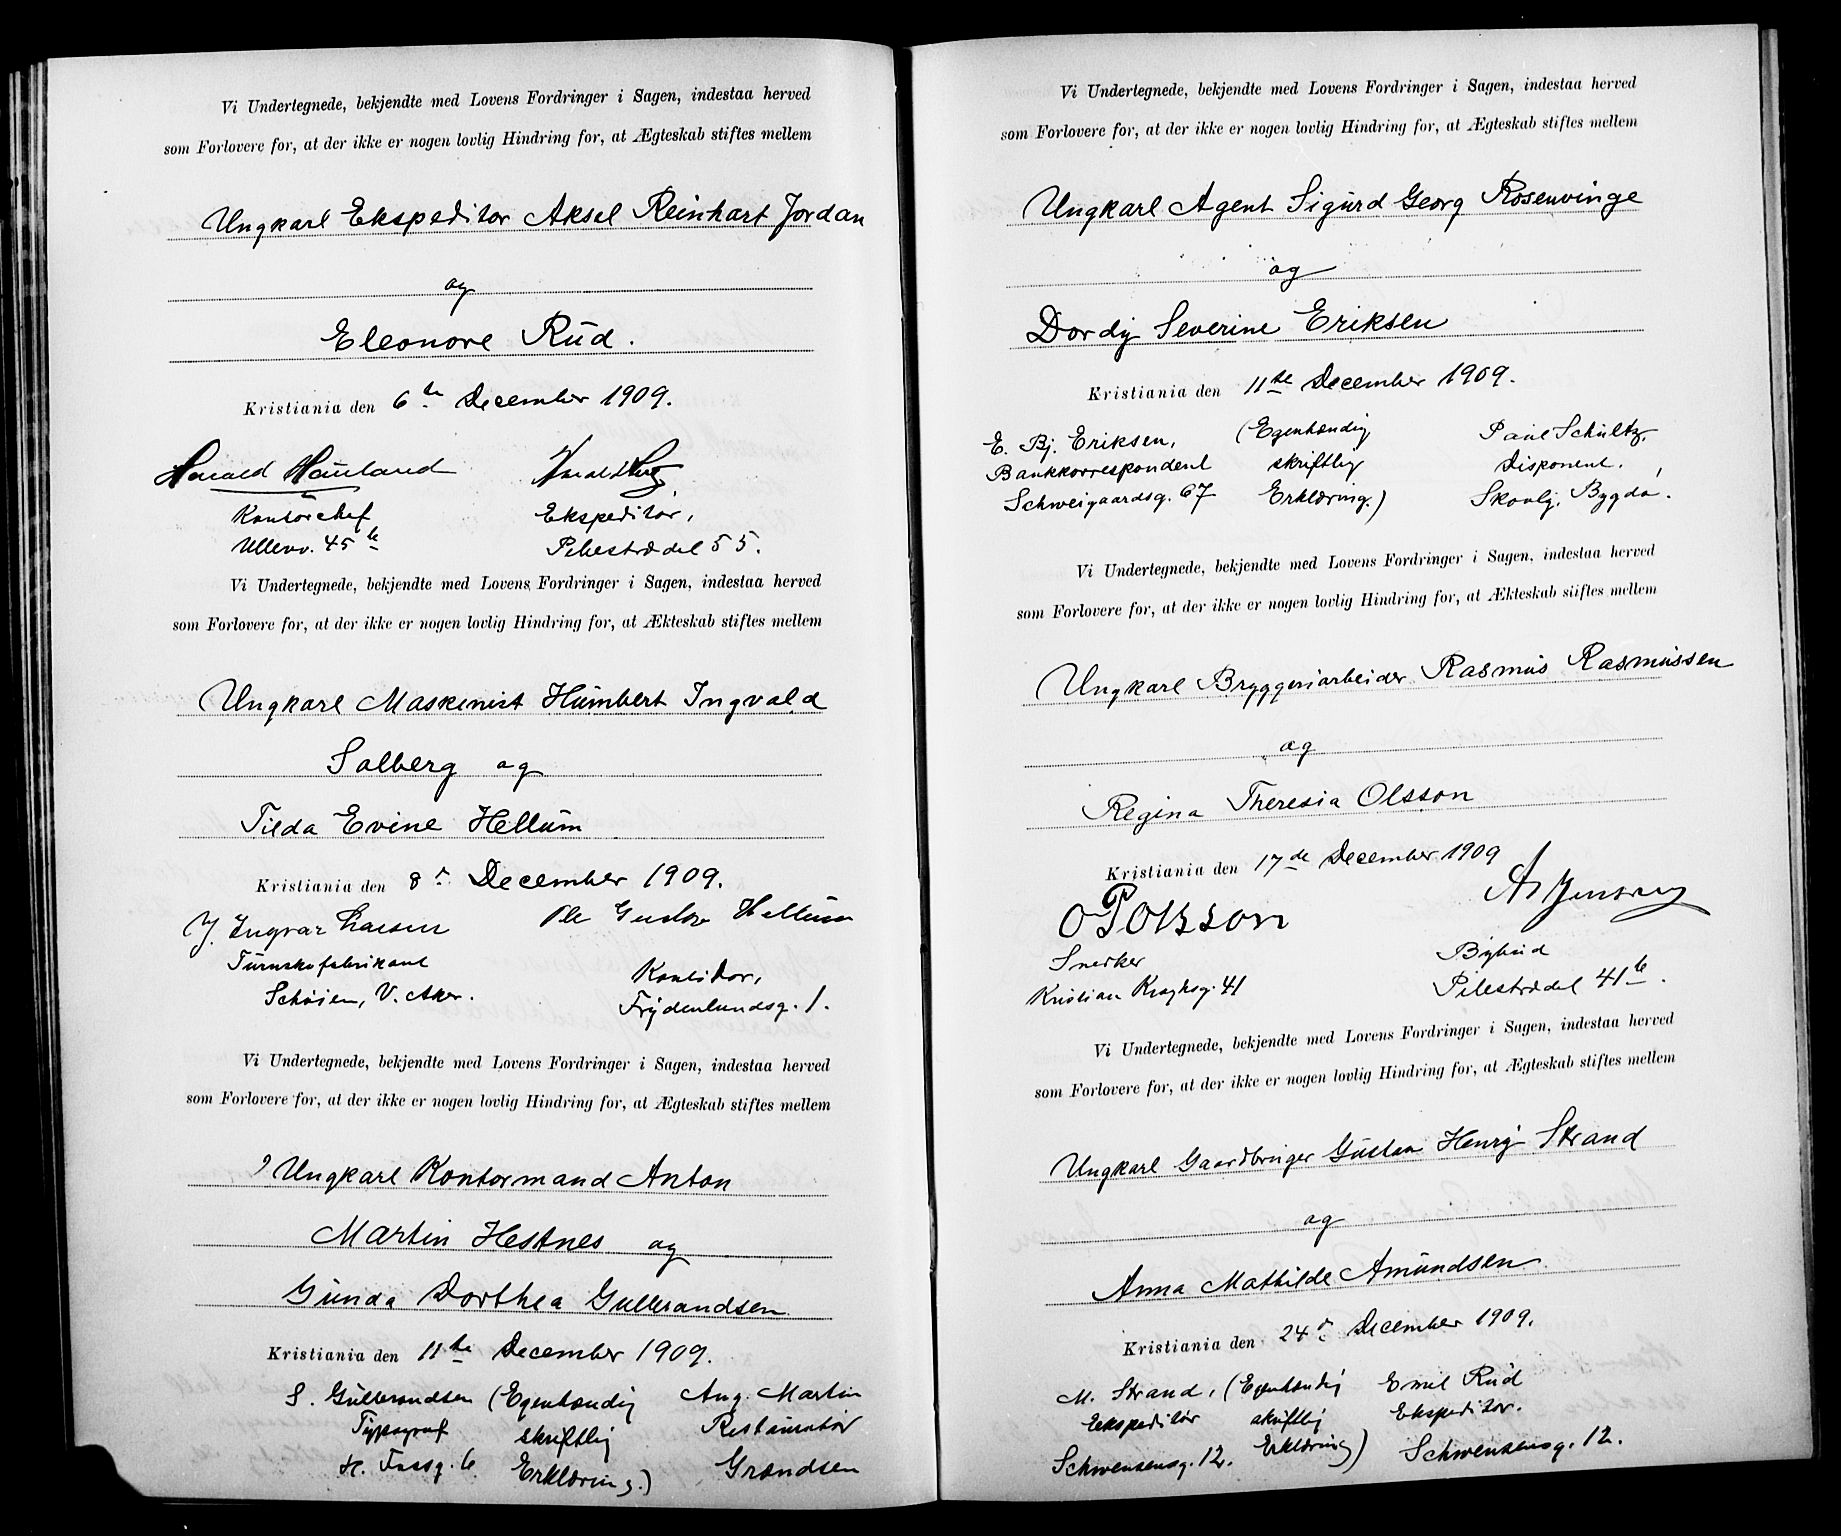 Vi Undertegnede, bekjendte med Lovens Fordringer i Sagen, indestaa herved
som Forlovere for, at der ikke er nogen lovlig Hindring for, at Ægteskab stiftes mellem
Ungkarl Ekspeditor Aksel Reinhart Jordan
og
Eleonore Rud.
Kristiania den 6te December 1909.
Harald Hauland
Kontorchef Ekspeditor,
Ullevv. 45 b Pilestrædet 55.
Vi Undertegnede, bekjendte med Lovens Fordringer i Sagen, indestaa herved
som Forlovere for, at der ikke er nogen lovlig Hindring for, at Ækteskab stiftes mellem
Ungkarl Maskinist Humbert Ingvald
Solberg og
Tilda Evine Hellum
Kristiania den 8de December 1909.
J. Ingvar Larsen Ole Gustav Hellum
Turnskofabrikant Kontorbor,
Schøien, V. Aker. Frydenlundsg. 1.
Vi Undertegnede, bekjendte med Lovens Fordringer i Sagen, indestaa herved
som Forlovere for, at der ikke er nogen lovlig Hindring for, at Ægteskab stiftes mellem
Ungkarl Kontormand Anton
Martin Hestnes og
Gunda Dorthea Gulbrandsen
Kristiania den 11te December 1909.
S. Gulbrandsen (Egenhændig Aug. Martin
Typograf skriftlig Restauratør
6 Erklæring.) Grændsen
Vi Undertegnede, bekjendte med Lovens Fordringer i Sagen, indestaa herved
som Forlovere for, at der ikke er nogen lovlig Hindring for, at Ægteskab stiftes mellem
Ungkarl Agent Sigurd Georg Rosenvinge
og
Dordy Severine Eriksen
Kristiania den 11te December 1909.
E. Bj. Eriksen, (Egenhændig Paul Schultz,
Bankkorrespondent skriftlig Disponent.
Schweigaardsg. 67 Erklæring.) Skovly, Bygdø.
Vi Undertegnede, bekjendte med Lovens Fordringer i Sagen, indestaa herved
som Forlovere for, at der ikke er nogen lovlig Hindring for, at Ækteskab stiftes mellem
Ungkarl Bryggeriarbeider Rasmus Rasmussen
og
Regina Theresia Olsson
Kristiania den 17de December 1909
O P Olsson A Jensen
Snedker Bybud
Kristian Kroghsg. 41 Pilestrædet 41 b.
Vi Undertegnede, bekjendte med Lovens Fordringer i Sagen, indestaa herved
som Forlovere for, at der ikke er nogen lovlig Hindring for, at Ægteskab stiftes mellem
Ungkarl Gaardbruger Gustav Henry Strand
og
Anna Mathilde Amundsen
Kristiania den 24de December 1909.
M. Strand, (Egenhændig Emil Rud
Ekspeditør skriftlig Ekspeditor.
Schwensensg. 12. Erklæring) Schwensensg. 12.